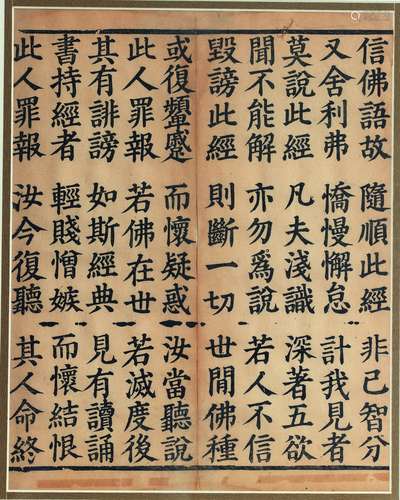 信佛語故　隨順此經　非己智分
又舍利弗　憍慢懈怠　計我見者
莫說此經　凡夫淺識　深著五欲
聞不能解　亦勿爲說　若人不信
毀謗此經　則斷一切　世間佛種
或復顰蹙　而懷疑惑　汝當聽說
此人罪報　若佛在世　若滅度後
其有誹謗　如斯經典　見有讀誦
書持經者　輕賤憎嫉　而懷結恨
此人罪報　汝今復聽　其人命終